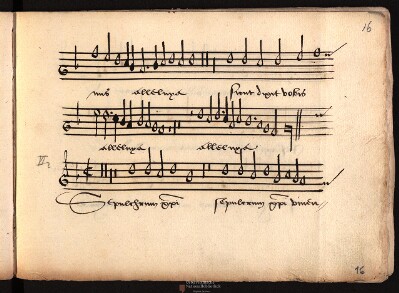 16
nus alleluya sicut dixit vobis
alleluya alleluya
III
Sepulchrum xpi sepulcrum xpi viven
16